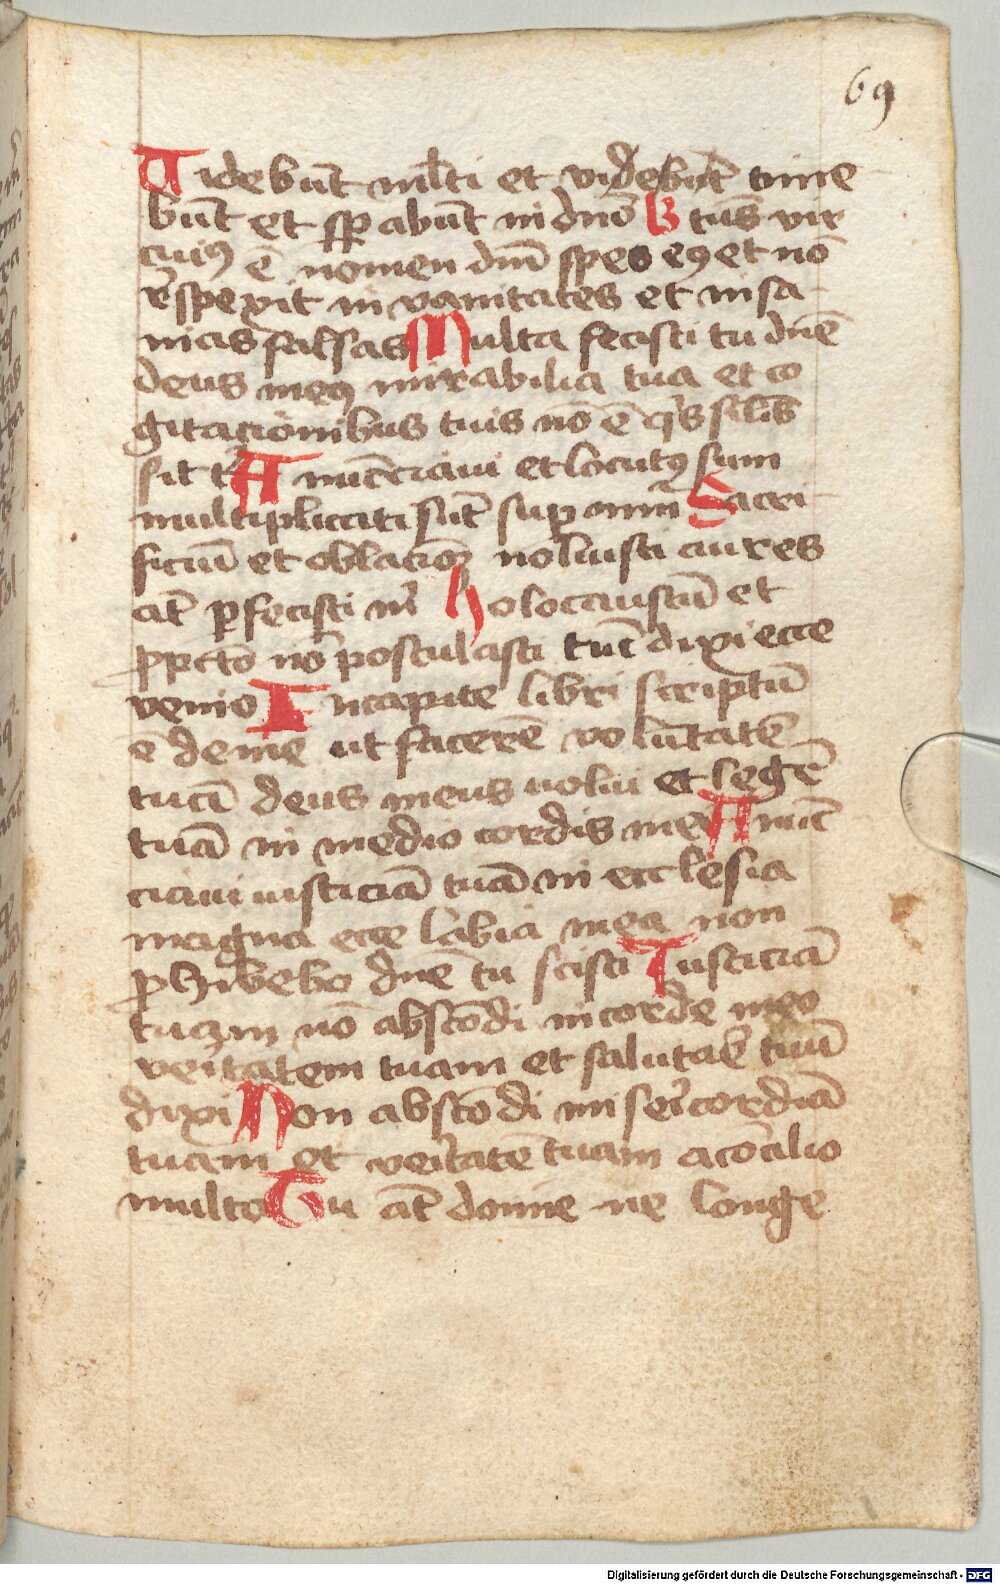 69
Videbūt ml̄ti et videbūt time
būt et sꝑabūt in dn̄o Btūs vir
cuiꝯ ē nomen dn̄i spes eꝯ et nō
r̄spexit in vanitates et insa
nias falsas Multa fecisti tu dn̄e
deus meꝯ mirabilia tua et co
gitacionibus tuis nō ē qͥs sil̄is
sit t̄ Anūcciaui et locutꝯ sum
multiplicati sūt suꝑ nūm̄ Sacri
ficiū et oblacōꝫ noluisti aures
āt ꝑfecisti m̄ Holocaustū et
ꝓ pctō nō postulasti tūc dixi ecce
venio In capite libri scriptū
ē de me ut facerē volūtatē
tuā deus meus uolui et legē
tuā in medio cordis mei Anūc
ciaui iusticiā tuā in ecclesia
magna ecce labia mea non
ꝓhibebo dn̄e tu scisti Iusticiā
tuam nō abscōdi in corde meo
veritatem tuam et salutar̄ tuū
dixi Non abscōdi misericordiā
tuam et veritatē tuam a cōcilio
multo Tu āt domīe ne longe
Digitalisierung gefördert durch die Deutsche Forschungsgemeinschaft - DFG